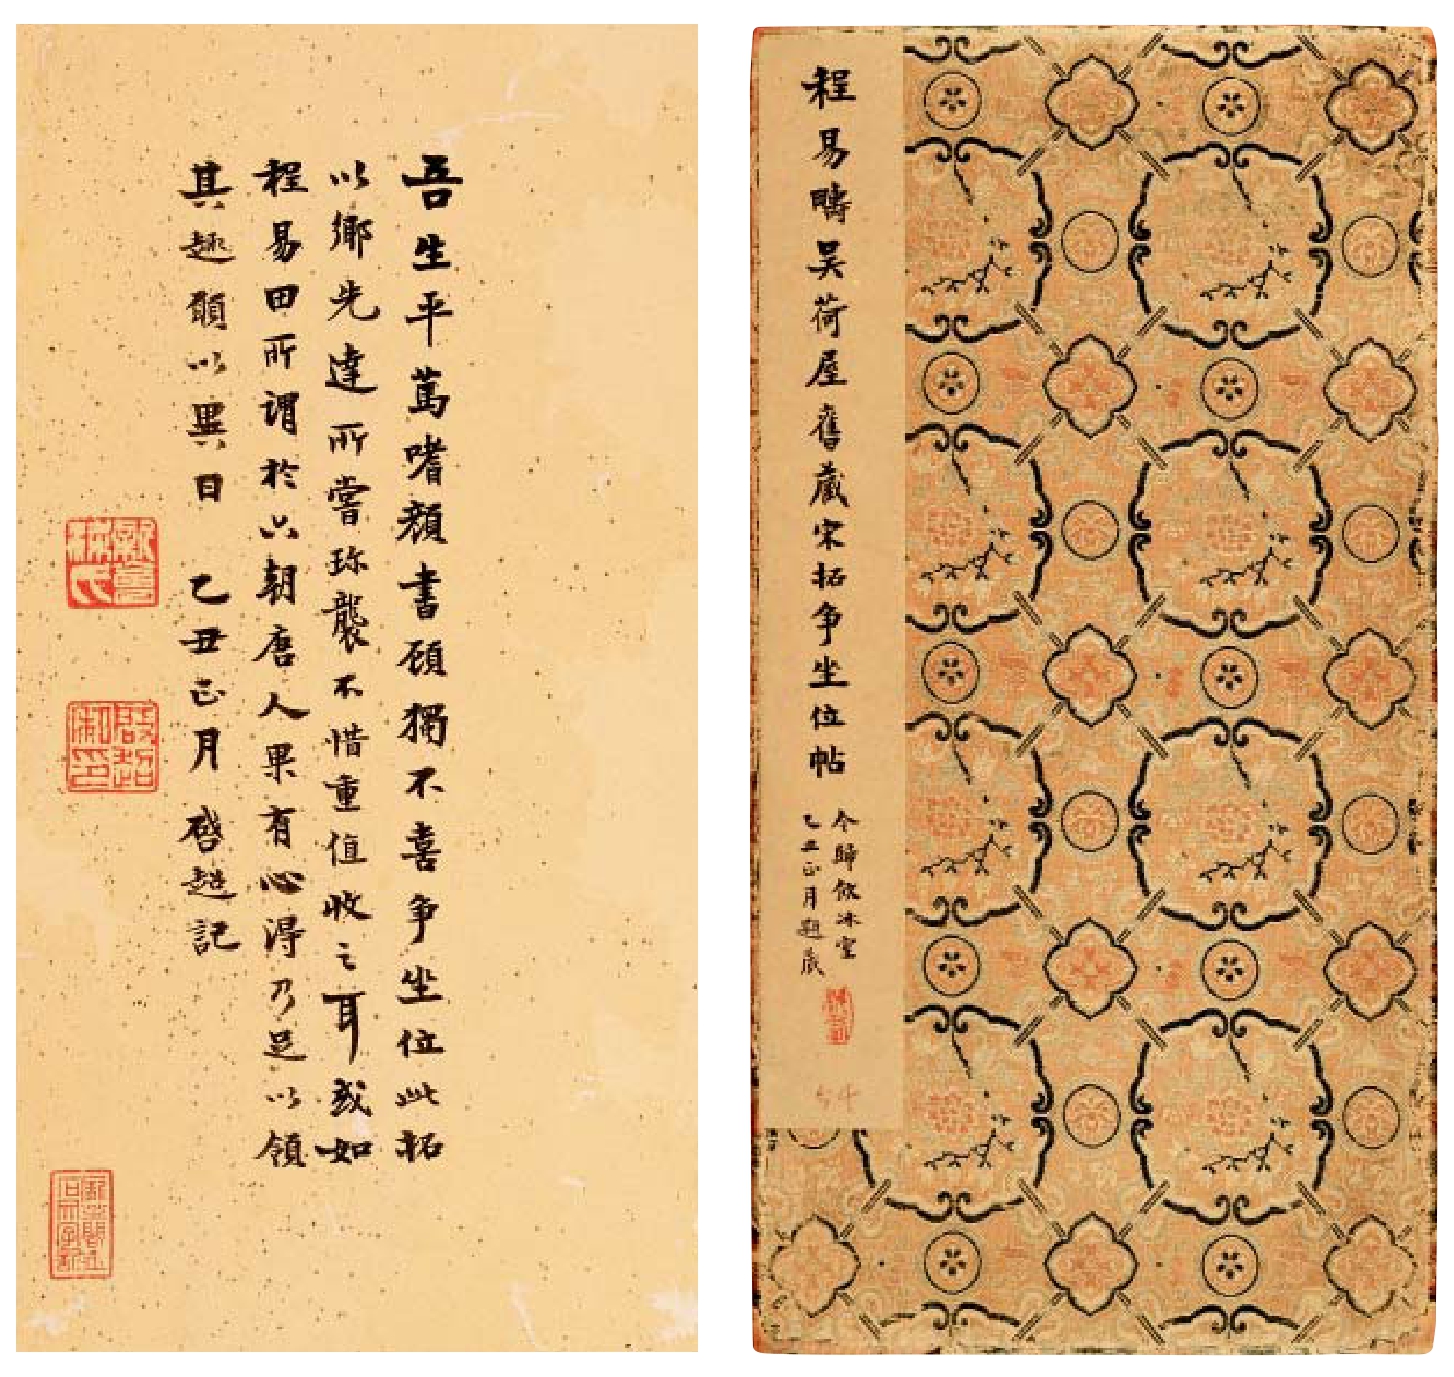 吾生平篤嗜顏書顧獨不喜爭坐位此拓
以鄉先達所嘗珍襲不惜重值收之耳或如
程易田所謂於六朝唐人果有心得乃足以領
其趣願以異日 乙丑正月 啓超記
程易疇吳荷屋舊藏宋拓爭坐位帖
今歸飲冰室
乙丑正月題藏